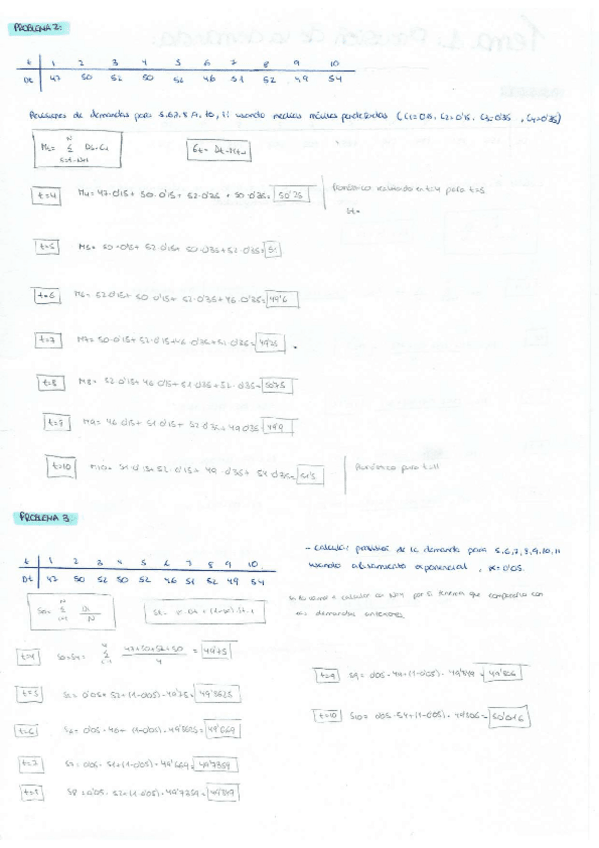 PROBLEMA 2:
t 1 2 3 4 5 6 7 8 9 10
Dt 47 50 52 50 52 46 51 52 49 54
Previsiones de demandas para 5,6,7,8,9,10,11 usando medias móviles ponderadas (C1=0'15, C2=0'15, C3=0'35, C4=0'35)
t=4 M4= 47·0'15+ 50·0'15+ 52·0'35 + 50·0'35= 50'25
Pronóstico realizado en t=4 para t=5
t=5 M5= 50·0'15+ 52·0'15+ 50·0'35+52·0'35= 51
t=6 M6= 52·0'15+ 50·0'15+ 52·0'35+46·0'35= 49'6
t=7 M7= 50·0'15+ 52·0'15+46·0'35+51·0'35= 49'25
t=8 M8= 52·0'15+ 46·0'15+ 51·0'35+52·0'35= 50'75
M9= 46·0'15+ 51·0'15+ 52·0'35+49·0'35= 49'9
t=10 M10= 51·0'15+52·0'15+ 49·0'35+ 54·0'35= 51'5
Pronóstico para t=11
PROBLEMA 3.
t 1 2 3 4 5 6 7 8 9 10
Dt 47 50 52 50 52 46 51 52 49 54
- Calcular pronóstico de la demanda para 5,6,7,8,9,10,11
usando alisamiento exponencial, α=0'05.
t=4 47+50+52+50 / 4 = 49'75
t=5 S5= 0'05·52+(1-0'05)·49'75= 49'8625
t=6 S6= 0'05·46+ (1-0'05)·49'8625= 49'669
t=7 S7= 0'05·51+(1-0'05)·49'669= 49'7359
t=8 S8=0'05·52+(1-0'05)·49'7359= 49'849
t=9 S9= 0'05·49+(1-0'05)·49'849= 49'806
t=10 S10= 0'05·54+(1-0'05)·49'806= 50'016